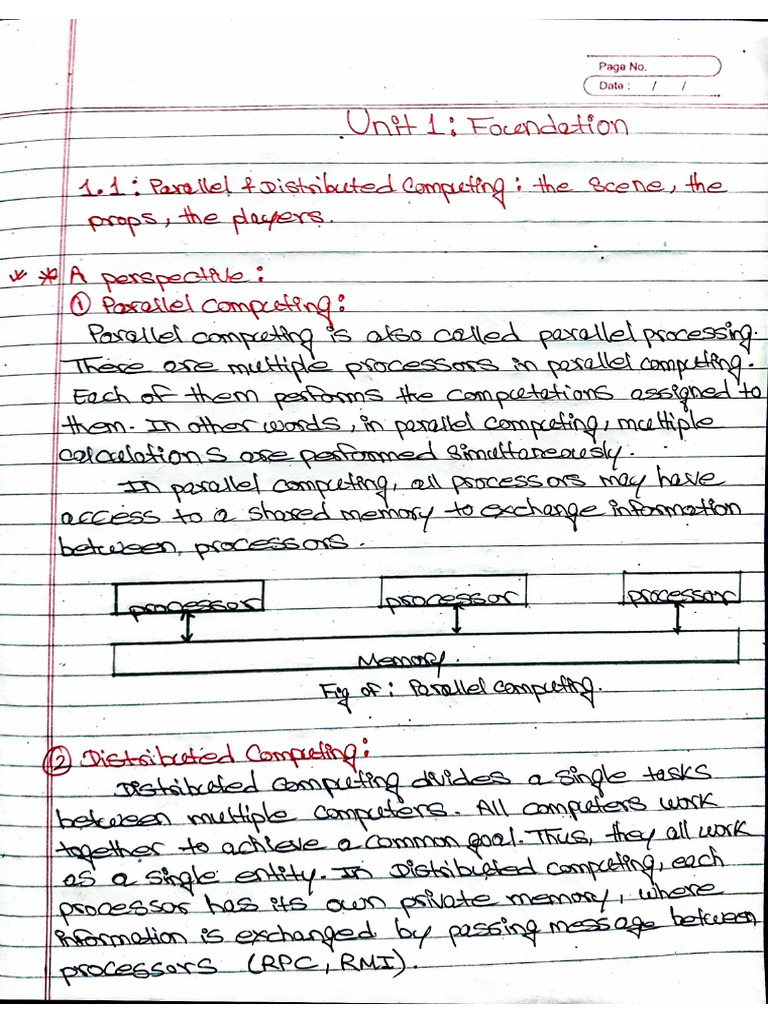 Page No.
Date : / /
Unit 1: Foundation
1.1: Parallel & Distributed Computing: the scene, the
props, the players.
** A perspective:
① Parallel Computing:
Parallel computing is also called parallel processing.
There are multiple processors in parallel computing.
Each of them performs the computations assigned to
them. In other words, in parallel computing, multiple
calculations are performed simultaneously.
In parallel computing, all processors may have
access to a shared memory to exchange information
between processors.
processor processor processor
Memory.
Fig of: Parallel computing.
② Distributed Computing:
Distributed computing divides a single tasks
between multiple computers. All computers work
together to achieve a common goal. Thus, they all work
as a single entity. In Distributed computing, each
processor has its own private memory, where
information is exchanged by passing message between
processors (RPC, RMI).